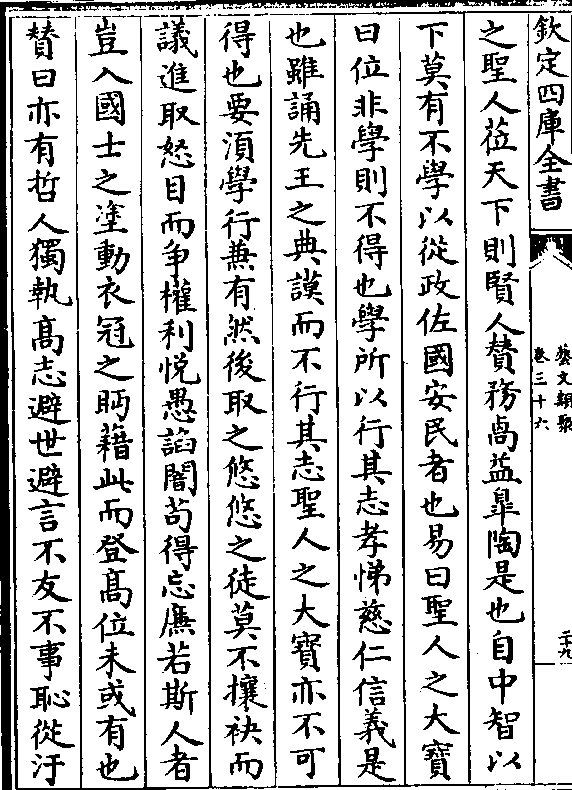 欽定四庫全書
藝文類聚
卷三十六
二十九
之聖人莅天下則賢人贊務禼益臯陶是也自中智以
下莫有不學以從政佐國安民者也易曰聖人之大寶
曰位非學則不得也學所以行其志孝悌慈仁信義是
也雖誦先王之典謨而不行其志聖人之大寶亦不可
得也要湏學行兼有然後取之悠悠之徒莫不攘袂而
議進取怒目而争權利悦愚諂闇茍得忘廉若斯人者
豈入國士之塗動衣冠之眄藉此而登髙位未或有也
賛曰亦有哲人獨執髙志避世避言不友不事恥從汙